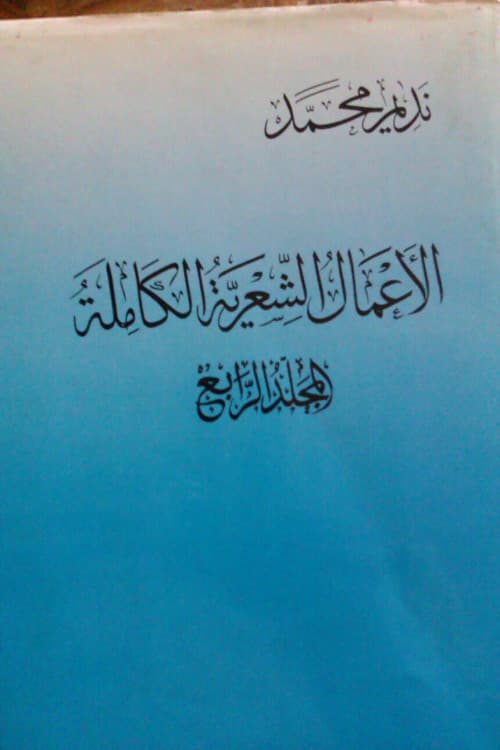 نَديم محمَّد
الأَعْمَال الشِّعْريَّة الكَامِلَة
المجَلّد الرَّابع